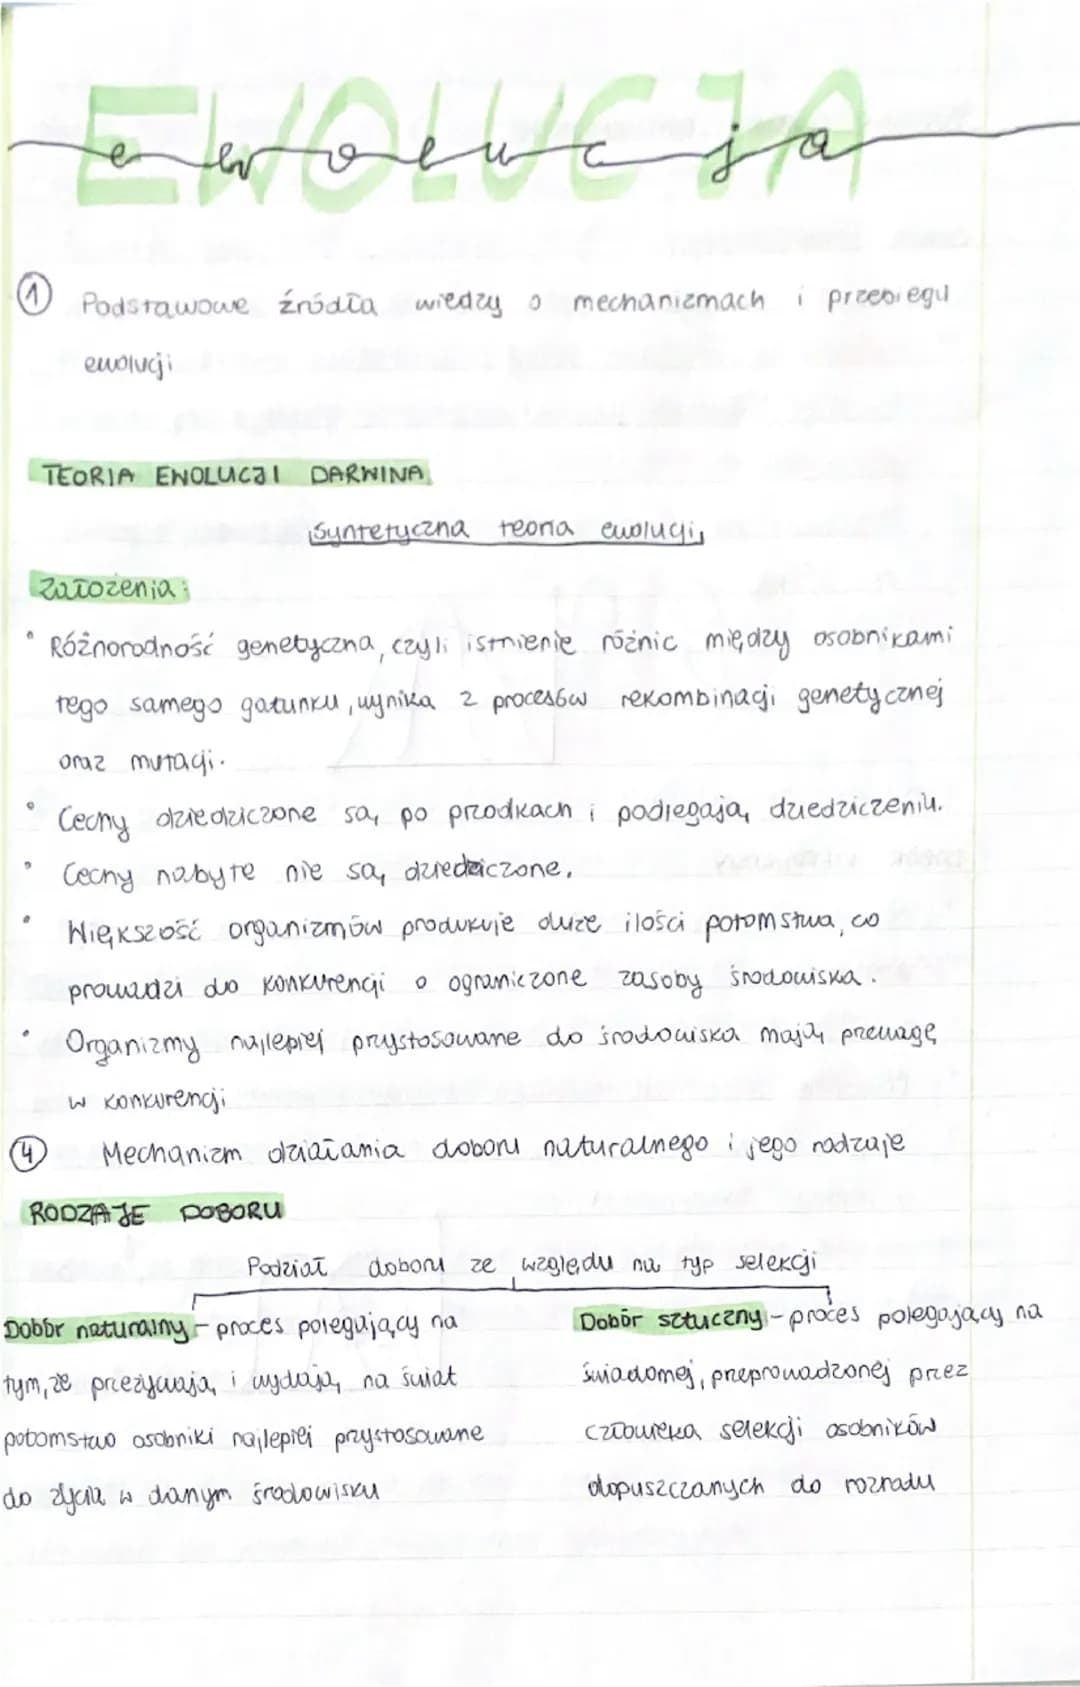 EWOLUCJA
ewolucja
① Podstawowe źródła wiedzy o mechanizmach i przebiegu
ewolucji
TEORIA EWOLUCJI DARWINA
Syntetyczna teoria ewolucji
Założenia:
• Różnorodność genetyczna, czyli istnienie różnic między osobnikami
tego samego gatunku, wynika z procesów rekombinacji genetycznej
oraz mutacji.
• Cechy dziedziczone są po przodkach i podlegają dziedziczeniu.
• Cechy nabyte nie są dziedziczone.
• Większość organizmów produkuje duże ilości potomstwa, co
prowadzi do konkurencji o ograniczone zasoby środowiska.
• Organizmy najlepiej przystosowane do środowiska mają przewagę
w konkurencji
④ Mechanizm działania doboru naturalnego i jego rodzaje
RODZAJE DOBORU
Podział doboru ze względu na typ selekcji
Dobór naturalny - proces polegający na
tym, że przeżywają i wydają na świat
potomstwo osobniki najlepiej przystosowane
do życia w danym środowisku
Dobór sztuczny - proces polegający na
świadomej, przeprowadzonej przez
człowieka selekcji osobników
dopuszczanych do rozrodu